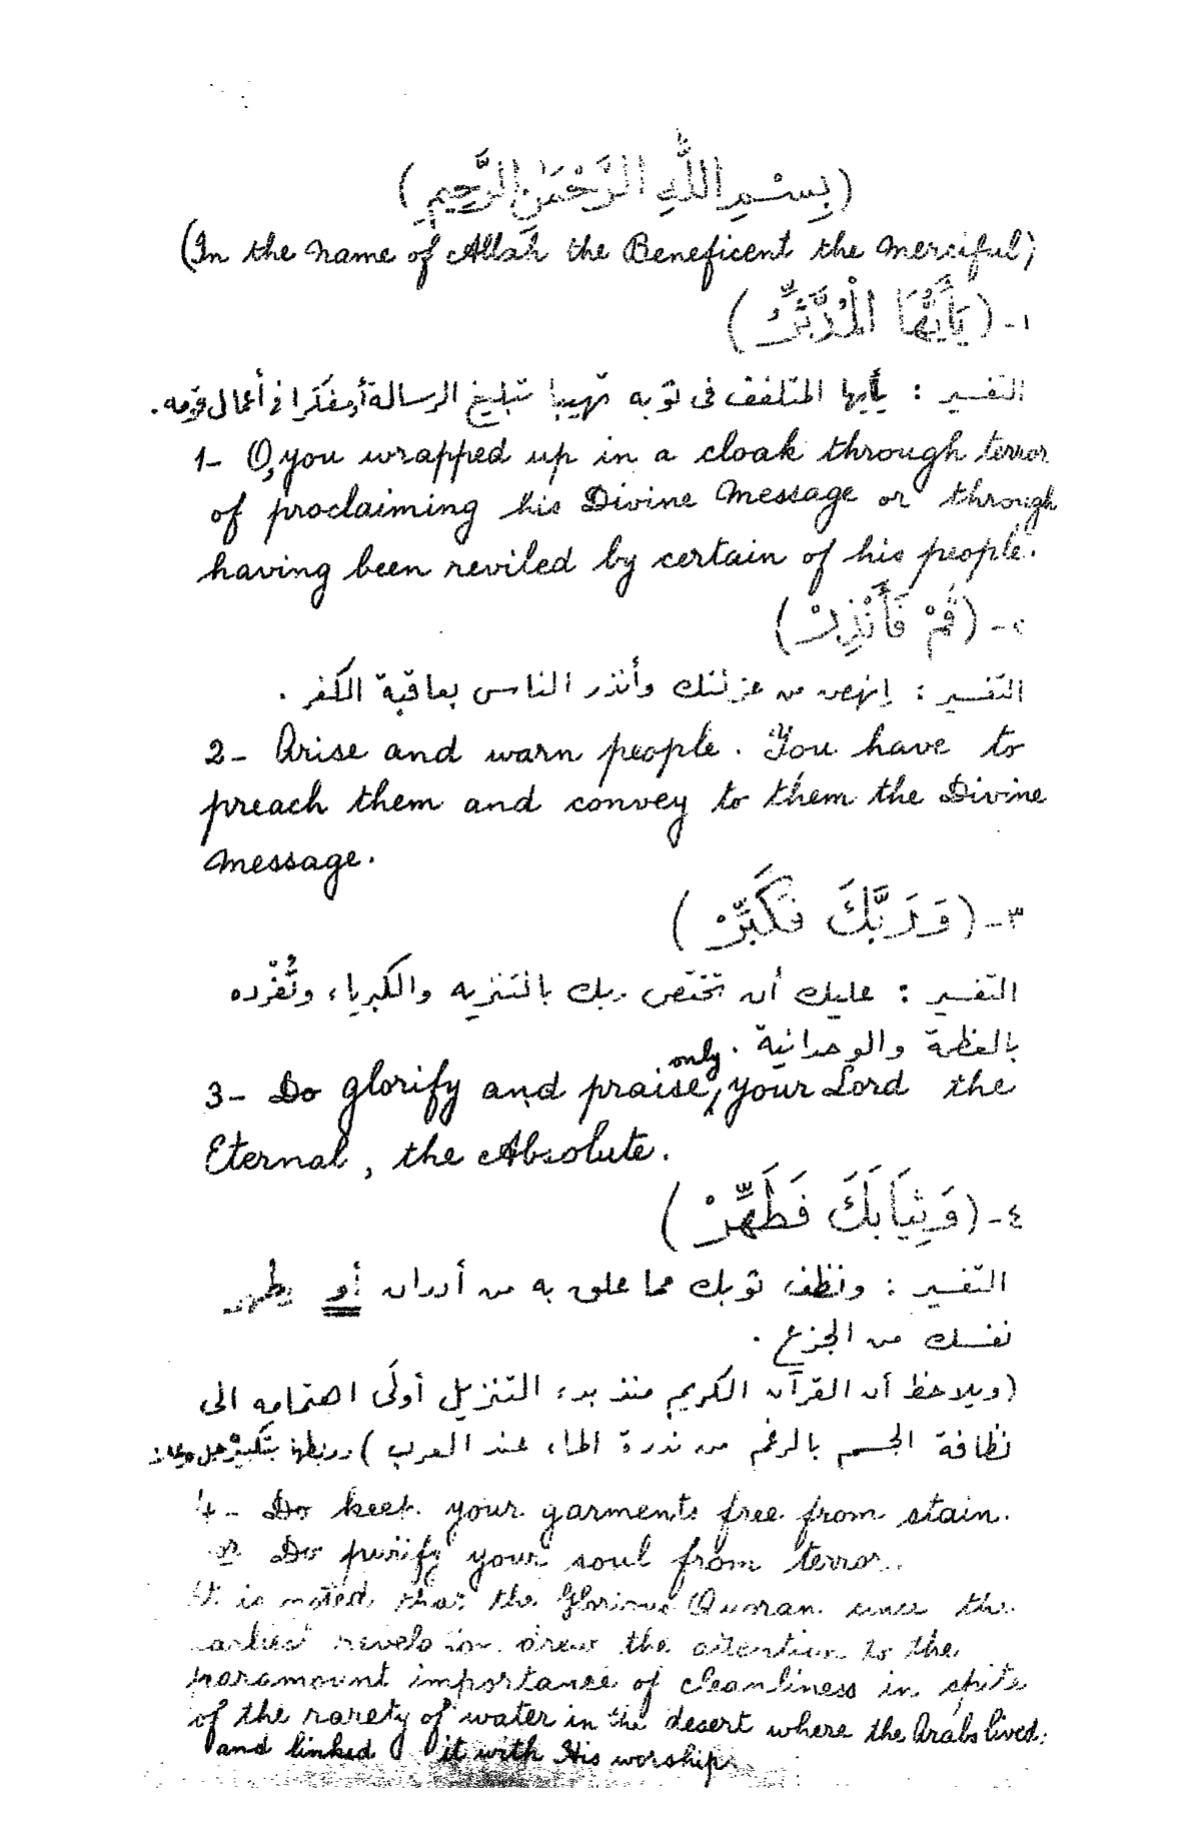 (بِسْمِ اللَّهِ الرَّحْمَنِ الرَّحِيمِ)
(In the name of Allah the Beneficent the Merciful)
١- (يَأَيُّهَا الْمُدَّثِّرُ)
التفسير : يأيها المتلفف فى ثوبه تهيبا تبليغ الرسالة أو مفكرا فى أعمال قومه.
1- O, you wrapped up in a cloak through terror
of proclaiming his Divine Message or through
having been reviled by certain of his people.
٢- (قُمْ فَأَنْذِرْ)
التفسير : إنهض من عزلتك وأنذر الناس بعاقبة الكفر .
2- Arise and warn people. You have to
preach them and convey to them the Divine
Message.
٣- (وَرَبَّكَ فَكَبِّرْ)
التفسير : عليك أن تختص ربك بالتنزيه والكبرياء وتُفْرده
بالعظمة والوحدانية .
3- Do glorify and praise only, your Lord the
Eternal, the Absolute.
٤- (وَثِيَابَكَ فَطَهِّرْ)
التفسير : ونظف ثوبك مما علق به من أدران أو يطهر
نفسك من الجزع .
(ويلاحظ أن القرآن الكريم منذ بدء التنزيل أولَى اهتمامه الى
نظافة الجسم بالرغم من ندرة الماء عند العرب )
4- Do keep your garments free from stain.
or Do purify your soul from terror.
It is noted that the Glorious Quran since the
earliest revelation drew the attention to the
paramount importance of cleanliness in spite
of the rarety of water in the desert where the Arabs lived.
and linked it with His worship.